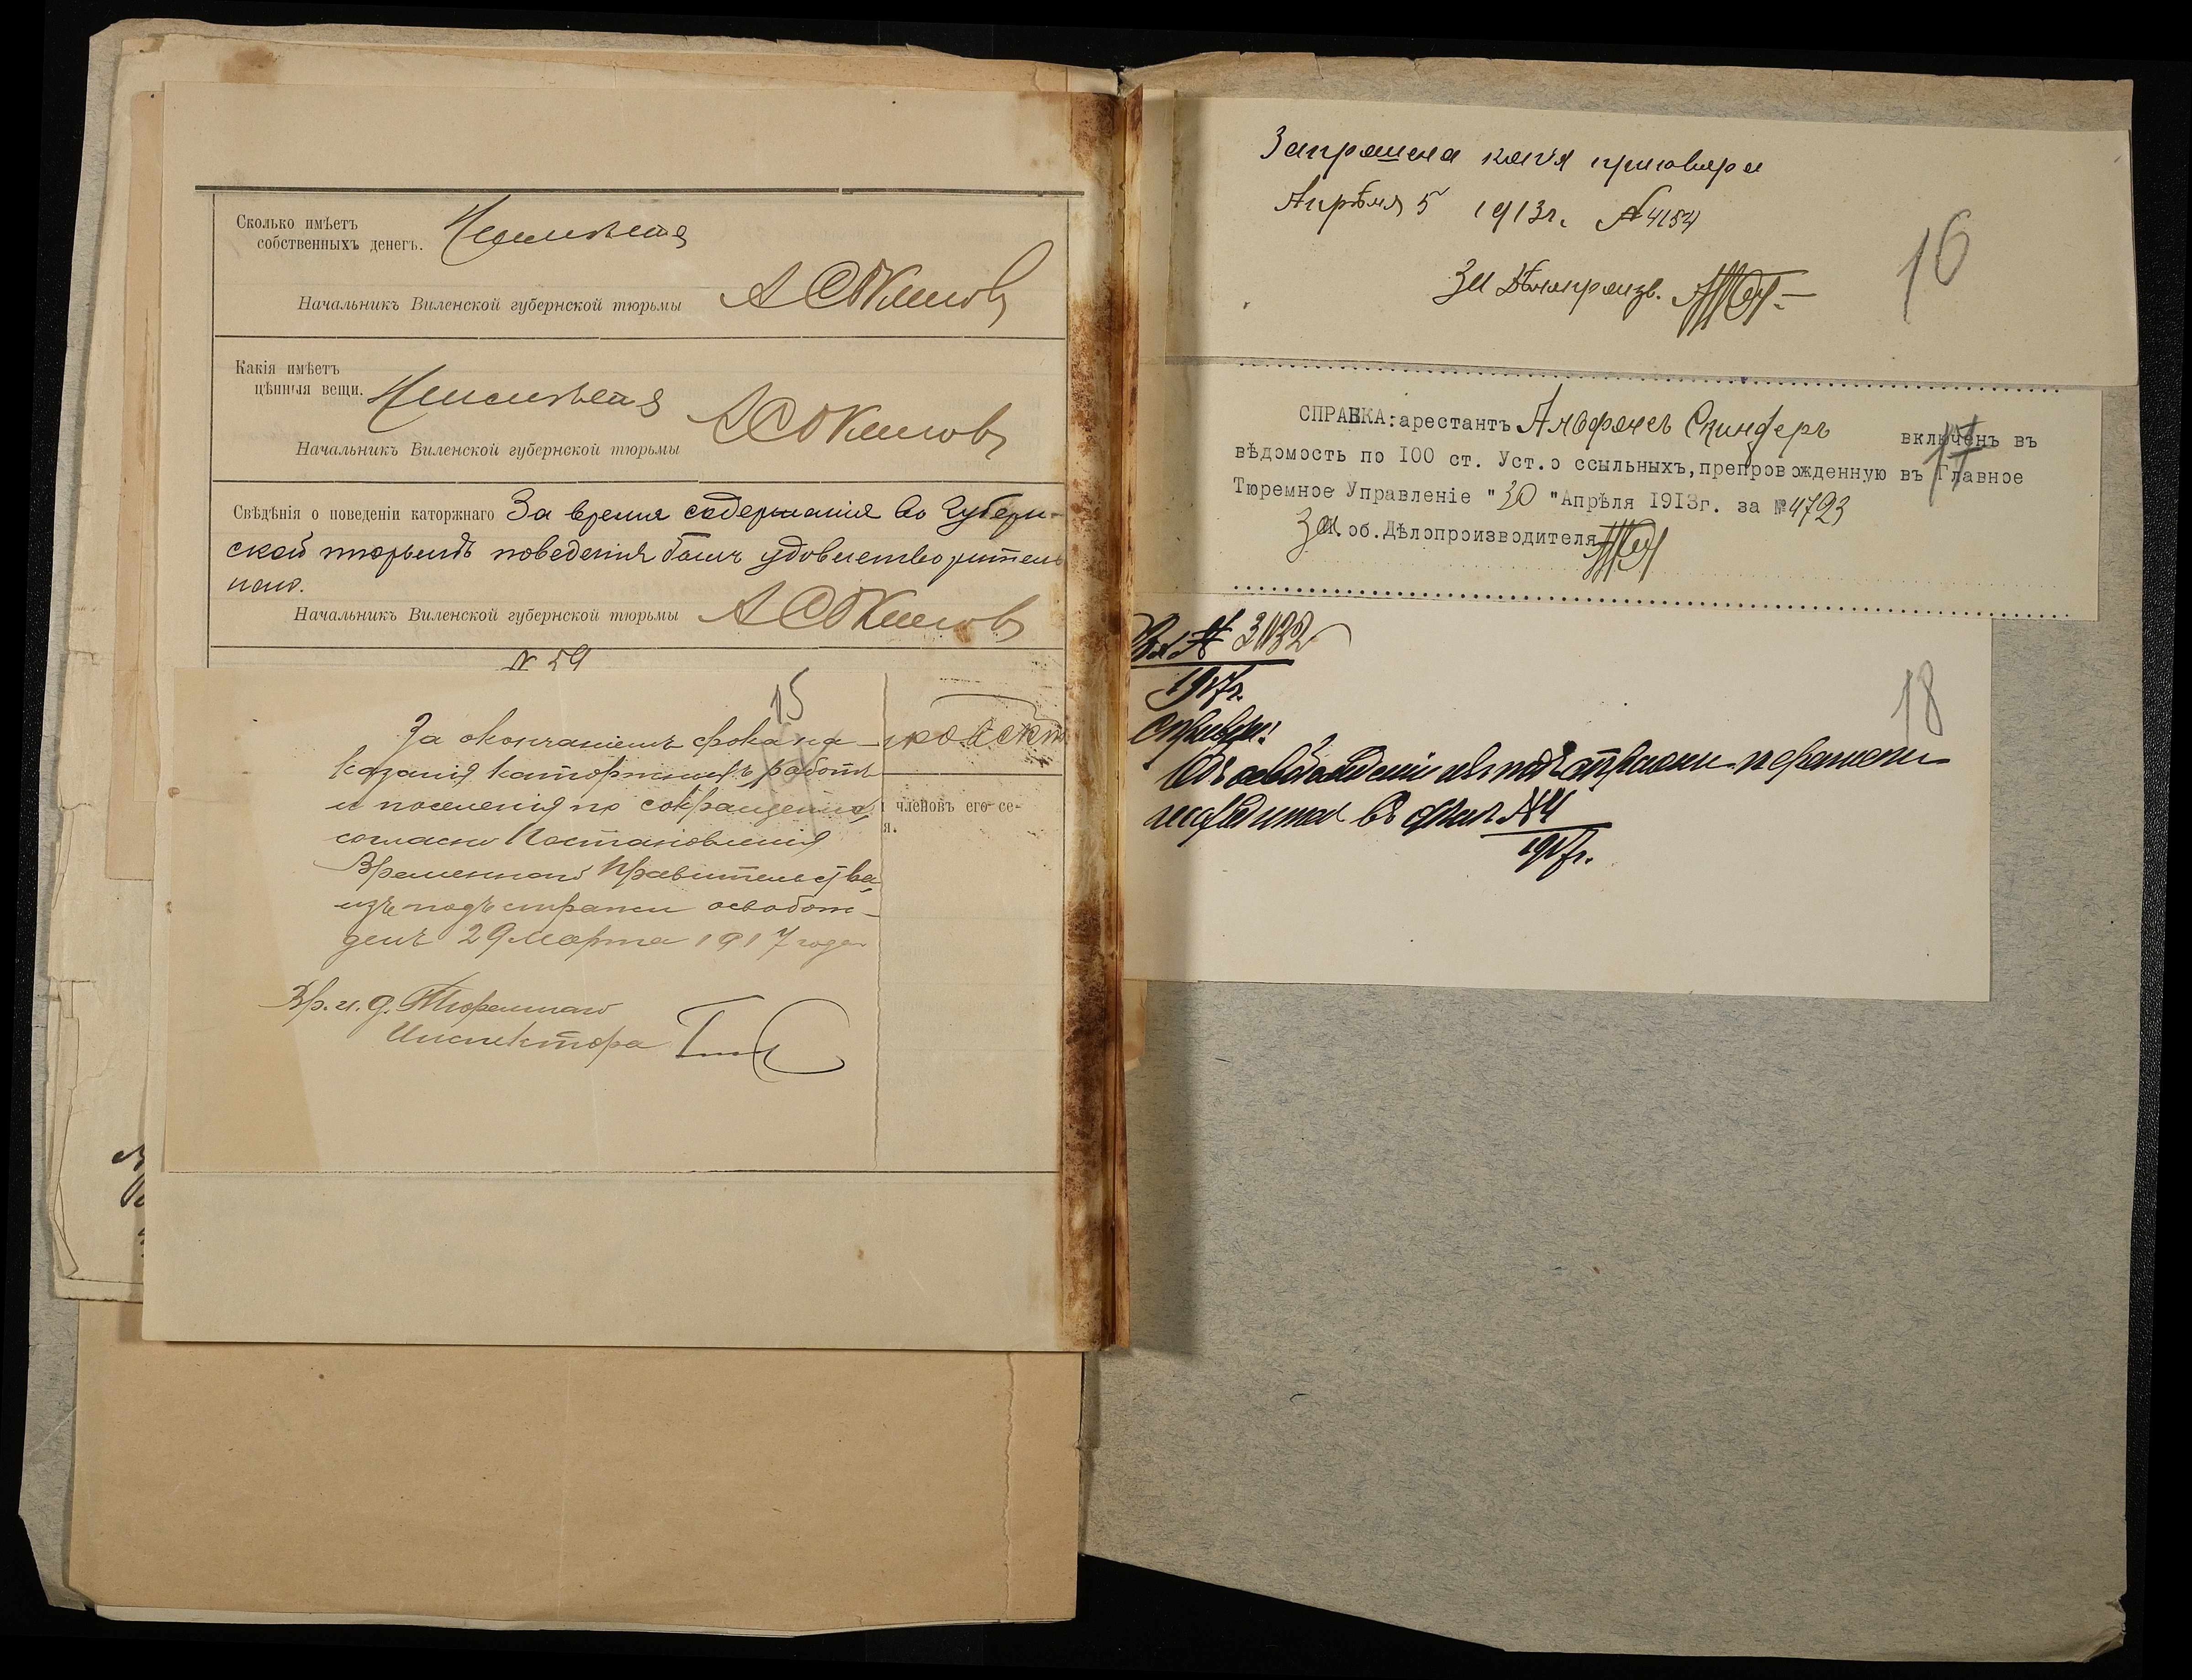 Сколько имѣетъ
собственныхъ денегъ. Неимѣетъ
Начальникъ Виленской губернской тюрьмы
Какія имѣетъ
цѣнныя вещи. Неимѣетъ
Начальникъ Виленской губернской тюрьмы
Свѣдѣнія о поведеніи каторжнаго За время содержанія во Губерн-
ской тюрьмѣ поведенія былъ удовлетворитель
наго.
Начальникъ Виленской губернской тюрьмы
№ 59
15
За окончаніемъ срока на-
казанія каторжныхъ работъ
и поселенія по сокращенію,
согласно Постановленія
Временнаго Правительства,
изъ подъ стражи освобож-
денъ 29 Марта 1917 года
Вр. и. д. Тюремнаго
Инспектора
членовъ его се-
я.
Запрошена копія приговора
Апрѣля 5 1913г. № 4154
За Дѣлопроизв.
16
СПРАВКА: арестантъ Альфонсъ Скиндеръ включенъ въ
17
вѣдомость по 100 ст. Уст. о ссыльныхъ, препровожденную въ Главное
Тюремное Управленіе "30 "Апрѣля 1913г. за №4793
За и об. Дѣлопроизводителя
Вх № 3032
1917г.
18
Справка:
Объ освобожденіи изъ подъ стражи переписка
находится въ дѣлѣ №4
1917г.